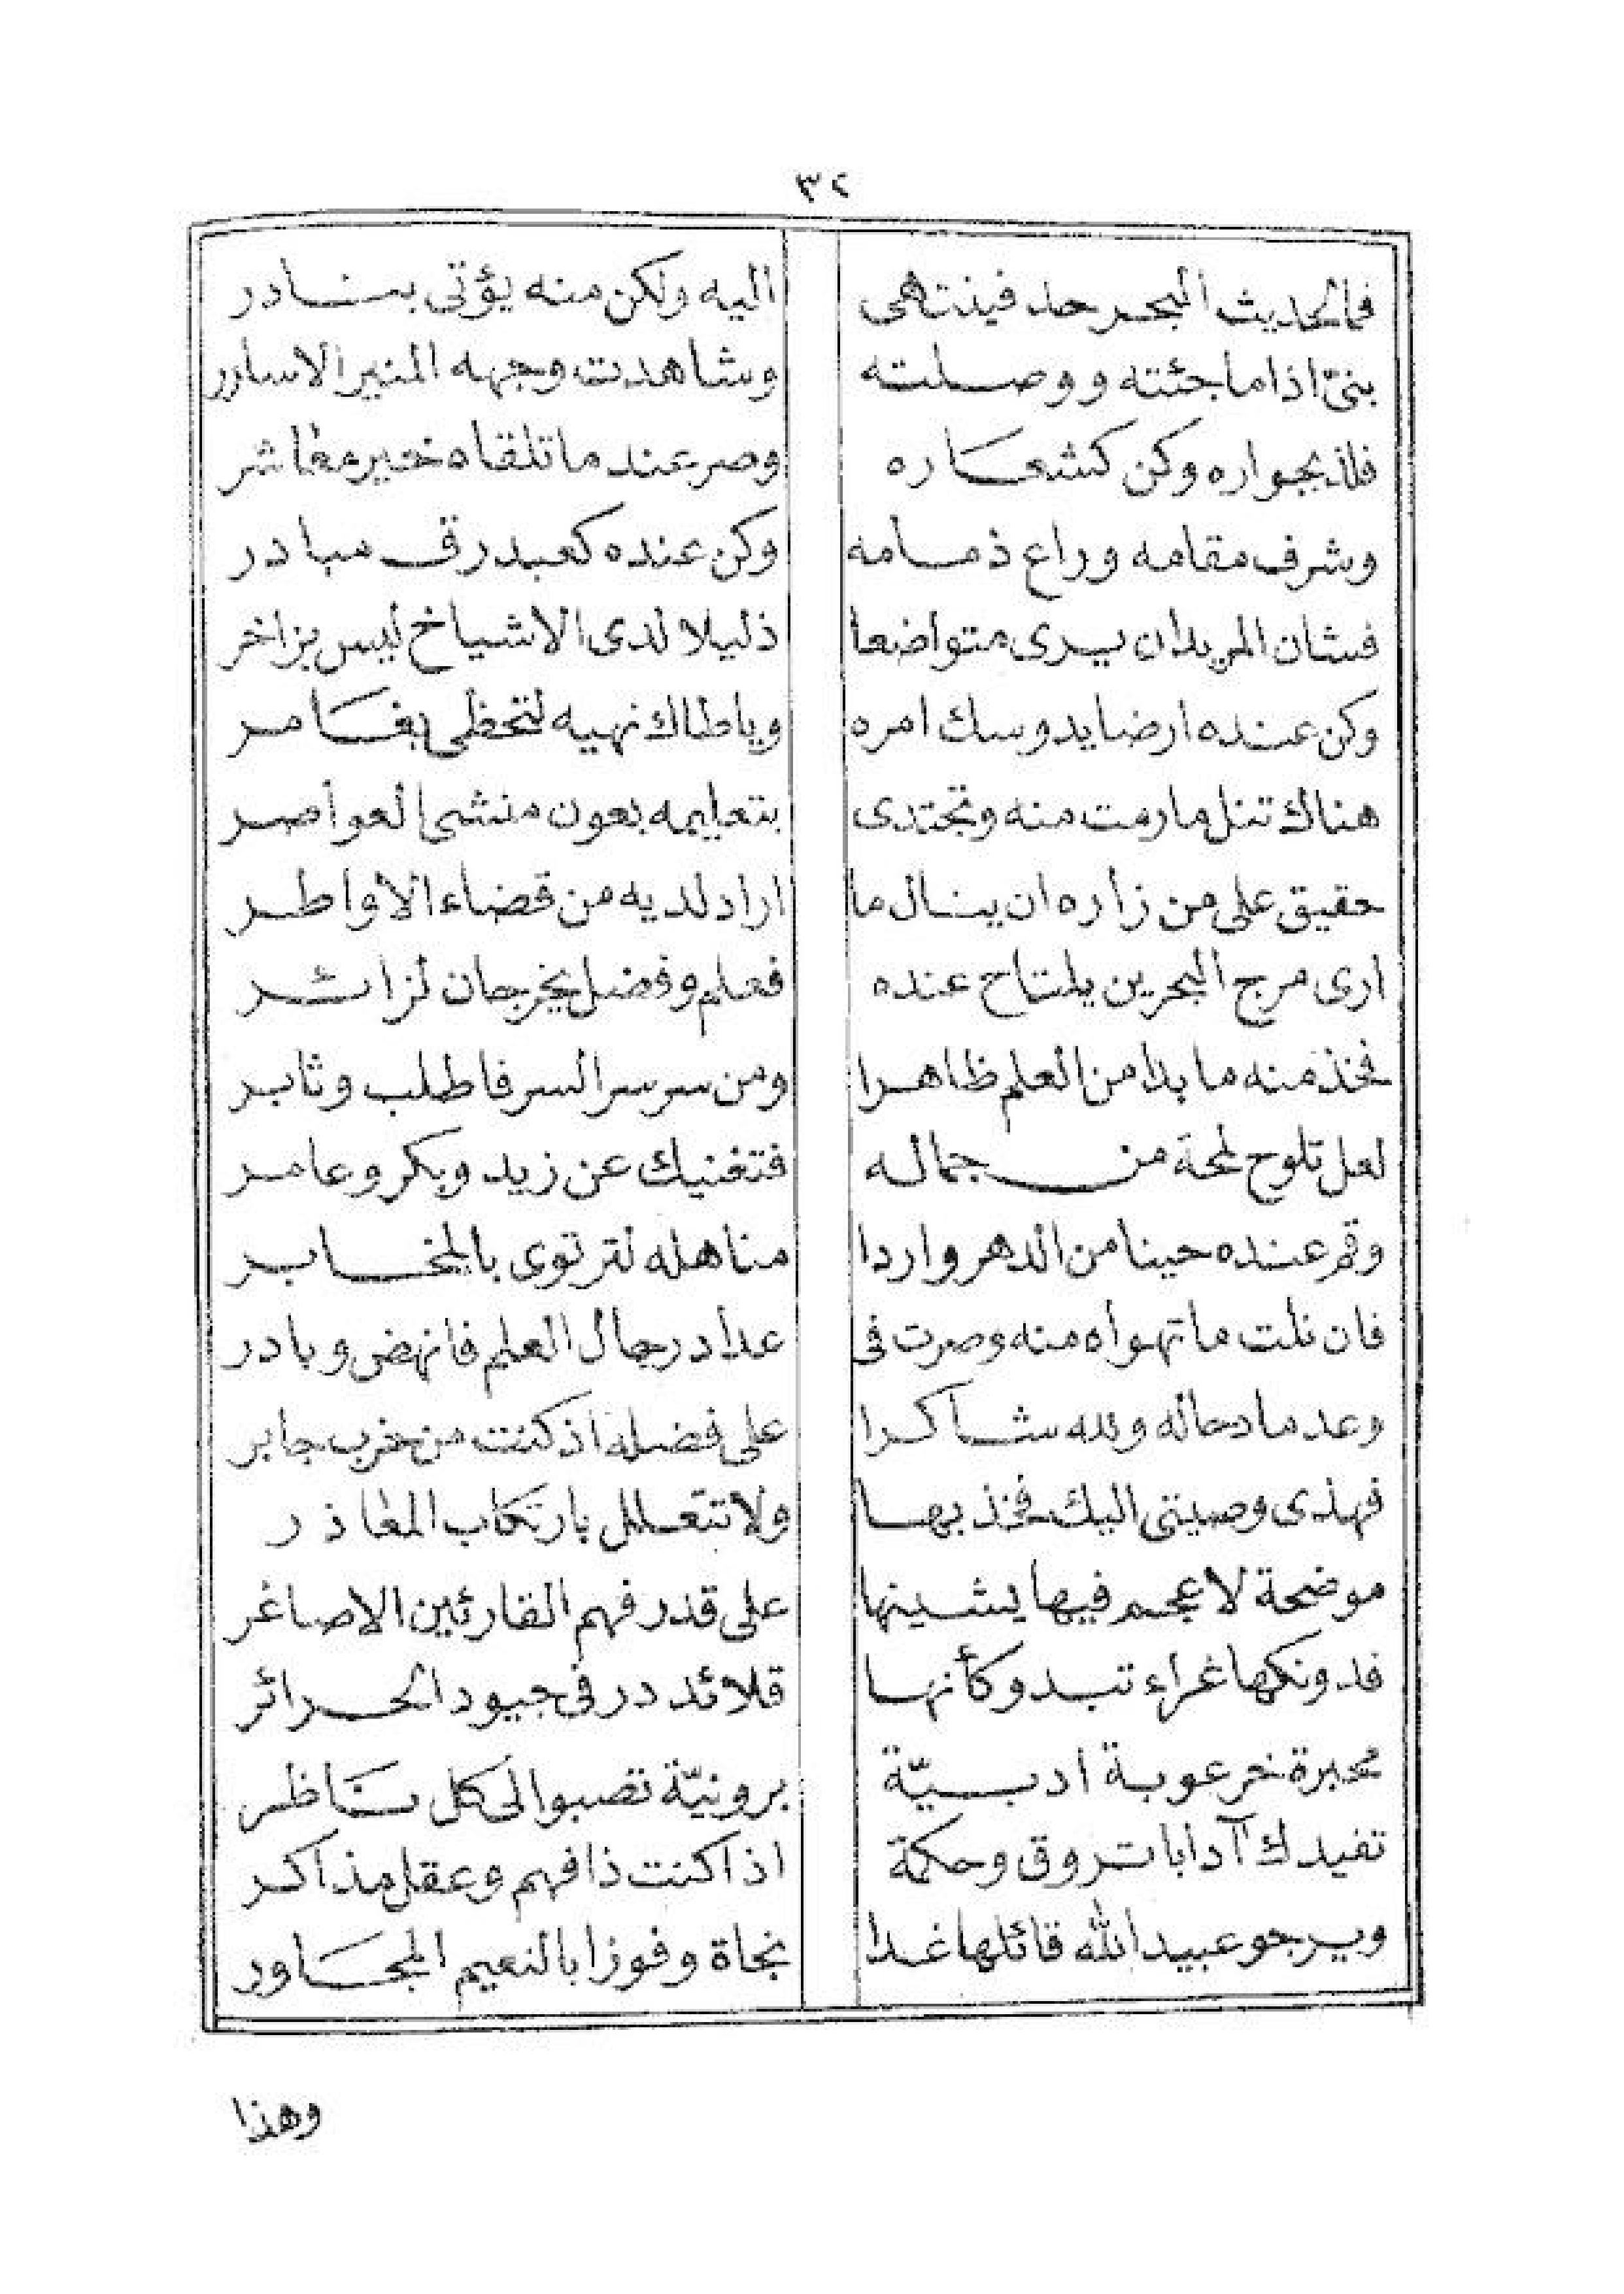 ٣٢
فما لحديث البحر حد فينتهى اليه ولكن منه يؤتى بنادر
بنىّ اذا ما جئته ووصلته وشاهدت وجهه المنير الاسارر
فلذ بجواره وكن كشعاره وصر عند ما تلقاه خير معاشر
وشرف مقامه وراع ذمامه وكن عنده كعبد رق مبادر
فشان المريد ان يرى متواضعا ذليلا لدى الاشياخ ليس بزاخر
وكن عنده ارضا يدوسك امره وياطاك نهيه لتحظى بغامر
هناك تنل ما رمت منه وتجتدى بتعليمه بعون منشى العواصر
حقيق على من زاره ان ينال ما اراد لديه من قضاء الأواطر
ارى مرج البحرين يلتاح عنده فعلم وفضل يخرجان لزائر
فخذ منه ما بدا من العلم ظاهرا ومن سر سر السر فاطلب وثابر
لعل تلوح لمحة من جماله فتغنيك عن زيد وبكر وعامر
وقم عنده حينا من الدهر واردا مناهله لترتوى بالمخابر
فان نلت ما تهواه منه وصرت فى عداد رجال العلم فانهض وبادر
وعد مادحا له ولله شاكرا على فضله اذ كنت من خرب جابر
فهذى وصيتى اليك فخذ بها ولا تتعلل بارتكاب المعاذر
موضحة لا عجم فيها يشينها على قدر فهم القارئين الاصاغر
فدونكها غراء تبدو كأنها قلائد در فى جيود الحرائر
محبرة خرعوبة ادبيّة برونيّة تصبوا لى كل ناظر
تفيدك آدابا تروق وحكمة اذا كنت ذا فهم وعقل مذاكر
ويرجو عبيد الله قائلها غدا نجاة وفوزا بالنعيم المجاور
وهذا